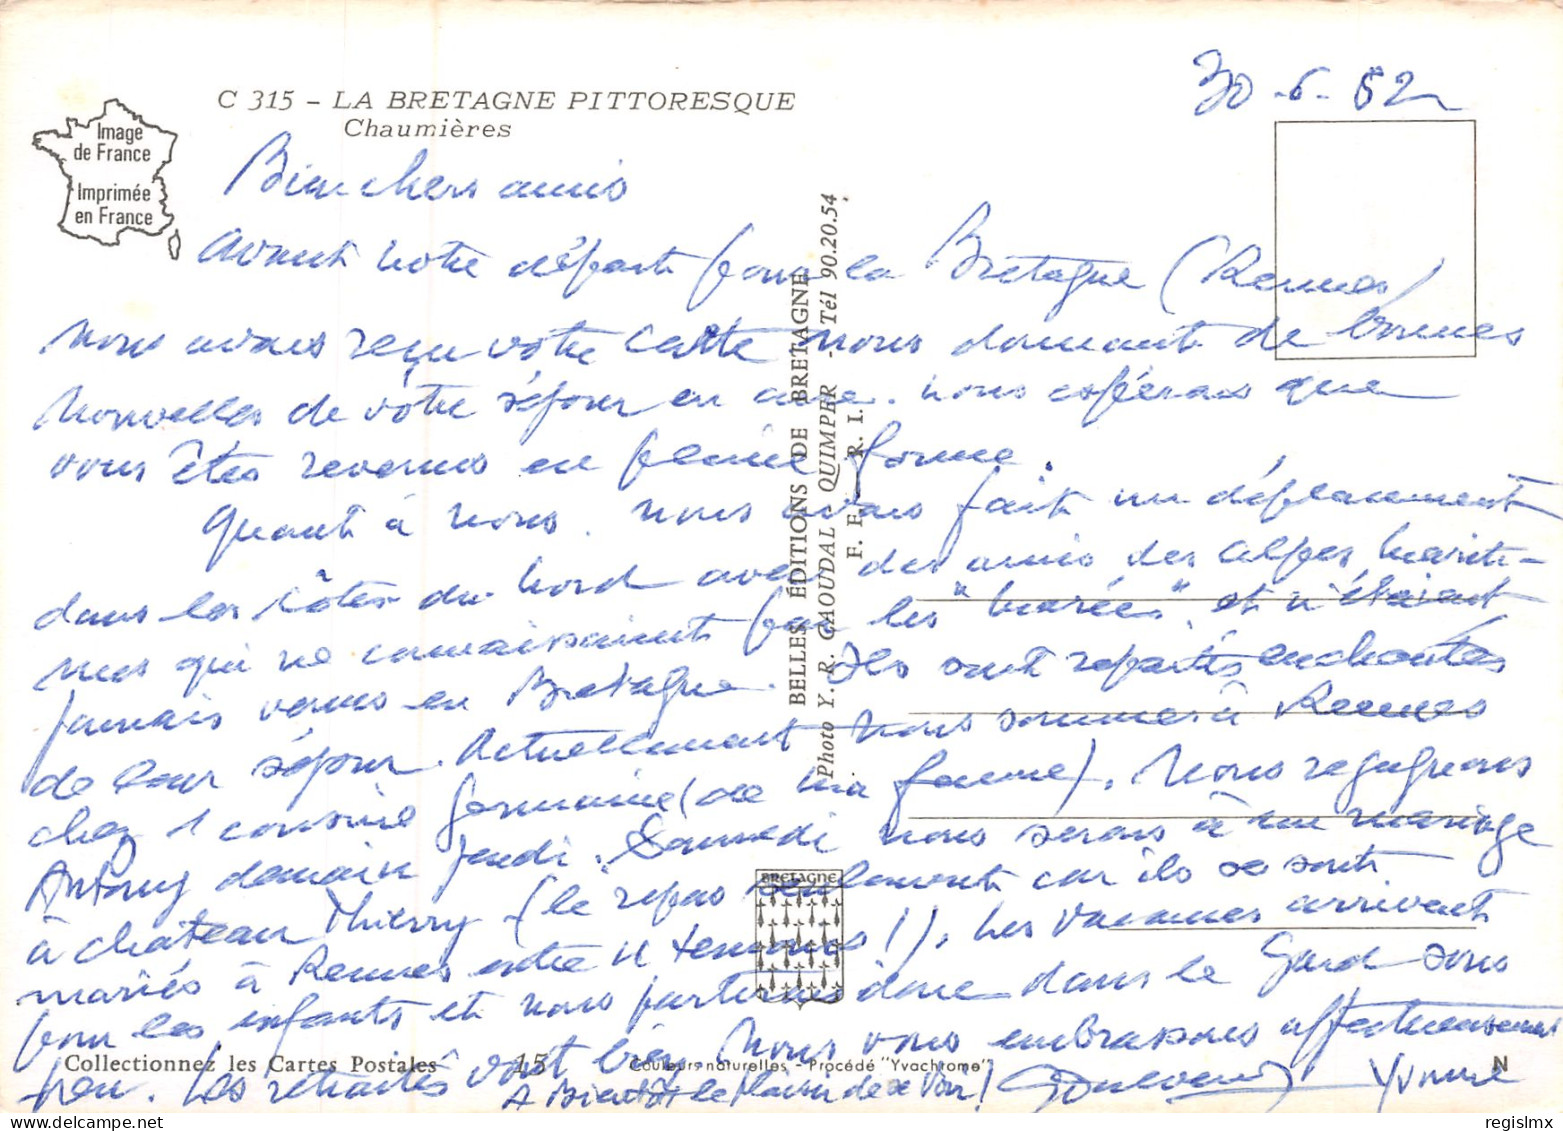 30-6-82
C 315 - LA BRETAGNE PITTORESQUE
Chaumières
Image
de France
Imprimée
en France
Bien chers amis
Avant notre départ pour la Bretagne (Rennes)
nous avons reçu votre carte nous donnant de bonnes
nouvelles de votre séjour en cure. nous espérons que
vous êtes revenus en pleine forme.
Quant à nous. nous avons fait un déplacement
dans les Côtes du Nord avec des amis des Alpes Mariti-
mes qui ne connaissaient pas les "marées", et n'étaient
jamais venus en Bretagne. Ils sont repartis enchantés
de leur séjour. Actuellement nous sommes à Rennes
chez 1 cousine germaine (de ma femme). Nous regagnons
Antony demain jeudi. Samedi nous serons à un mariage
à château Thierry (le repas seulement car ils se sont
mariés à Rennes entre 4 témoins!). Les vacances arrivent
pour les enfants et nous partirons donc dans le Gard sous
peu. Les retraités vont bien. Nous vous embrassons affectueusement
A Bientôt le Plaisir de se Voir! Yvonne
BELLES ÉDITIONS DE BRETAGNE
Photo Y. R. CAOUDAL - QUIMPER - Tél 90.20.54
F. E. R. I.
BRETAGNE
Collectionnez les Cartes Postales
15
Couleurs naturelles - Procédé "Yvachrome"
N
regislmx